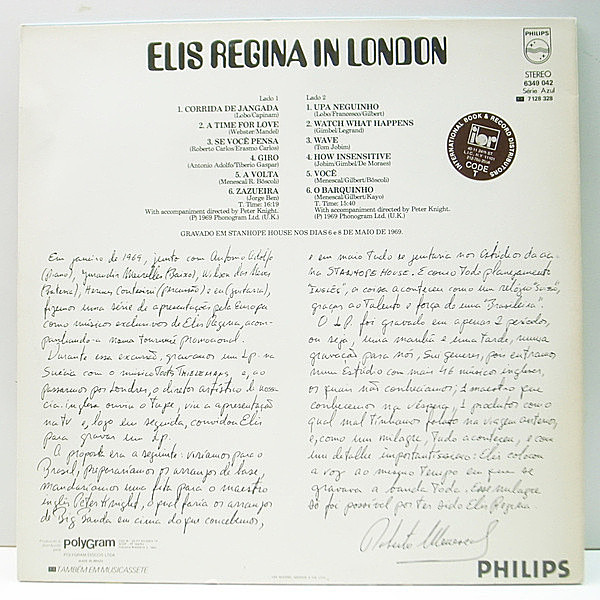 ELIS REGINA IN LONDON
PHILIPS
STEREO
6349 042
Série Azul
7128 328
Lado 1
1. CORRIDA DE JANGADA
(Lobo/Capinam)
2. A TIME FOR LOVE
(Webster/Mandel)
3. SE VOCÊ PENSA
(Roberto Carlos/Erasmo Carlos)
4. GIRO
(Antonio Adolfo/Tiberio Gaspar)
5. A VOLTA
(Menescal R. Bôscoli)
6. ZAZUEIRA
(Jorge Ben)
T. Time: 16:19
With accompaniment directed by Peter Knight.
(P) 1969 Phonogram Ltd. (U.K.)
Lado 2
1. UPA NEGUINHO
(Lobo/Francesco/Gilbert)
2. WATCH WHAT HAPPENS
(Gimbel/Legrand)
3. WAVE
(Tom Jobim)
4. HOW INSENSITIVE
(Jobim/Gimbel/De Moraes)
5. VOCÊ
(Menescal/Gilbert/Bôscoli)
6. O BARQUINHO
(Menescal/Gilbert/Kayo)
T. Time: 15:40
With accompaniment directed by Peter Knight.
(P) 1969 Phonogram Ltd. (U.K.)
INTERNATIONAL BOOK & RECORD DISTRIBUTORS
ibr
CODE
GRAVADO EM STANHOPE HOUSE NOS DIAS 6 e 8 DE MAIO DE 1969.
Em janeiro de 1969, junto com Antonio Adolfo
(piano), Jurandir Meirelles (Baixo), Wilson das Neves
(Bateria), Hermes Contesini (Percussão) e eu (guitarra),
fizemos uma série de apresentações pela Europa
como músicos exclusivos de Elis Regina, acom-
panhando-a numa tournnée promocional.
Durante essa excursão, gravamos um Lp. na
Suécia com o músico Toots Thielemans e, ao
passarmos por Londres, o diretor artístico
inglesa ouviu o tape, viu a apresentação
na TV e, logo em seguida, convidou Elis
para gravar um Lp.
A proposta era a seguinte: viríamos para o
Brasil, prepararíamos os arranjos de base,
mandaríamos uma fita para o maestro
inglês Peter Knight, o qual faria os arranjos
de Big Banda em cima do que concebemos,
e em maio tudo se juntaria nos estúdios da
na STANHOPE HOUSE. E como todo planejamento
"INGLÊS", a coisa aconteceu como um relógio suíço,
graças ao talento e força de uma "Brasileira".
O LP. foi gravado em apenas 2 períodos,
ou seja, uma manhã e uma tarde, numa
gravação para nós, Sui generes, pois entramos
num estúdio com mais 46 músicos ingleses,
os quais não conhecíamos; 1 maestro que
conhecemos na véspera, 1 produtor com o
qual mal tínhamos falado na viagem anterior,
e, como um milagre, tudo aconteceu, e com
um detalhe importantíssimo: Elis colocou
a voz ao mesmo tempo em que se
gravava a banda toda. Esse milagre
só foi possível por ter sido Elis Regina
Roberto Menescal
polyGram
POLYGRAM DISCOS LTDA.
TAMBÉM EM MUSICASSETE
PHILIPS